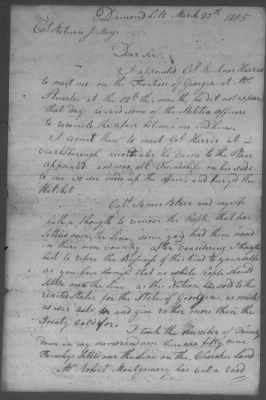 Diamond hill March 23th 1805
Col Return J. Meigs
Dear Sir
I appointed Col B. Harris
to meet me on the Frontiers of Georgia at Mr
the 12th this month he did not appear
that day to send some of the Militia officers
to reconcile the affair between me and him.
I went them to meet Col Harris at
he came to the Place
appointed and was all Friendship on his side
to me so we made up the affair and buried the
Hatchet
Capt James Blair and myself
hath a thought to remove the People that has
Settled over the line, some say had them moved
in there own Country after considering I thought
best to refere the Business of this kind to yourselfe
as you have that no whole People should
Settle over the line as the Nation has sold to the
United States for the State of Georgia as much
as we ask and give no more than the
Treaty calls for.
I took the number of Familys
down in my memorandum there are fifty nine
Familys Settled over the Line on the Cherokee Land
Mr Robert Montgomery has cut a road